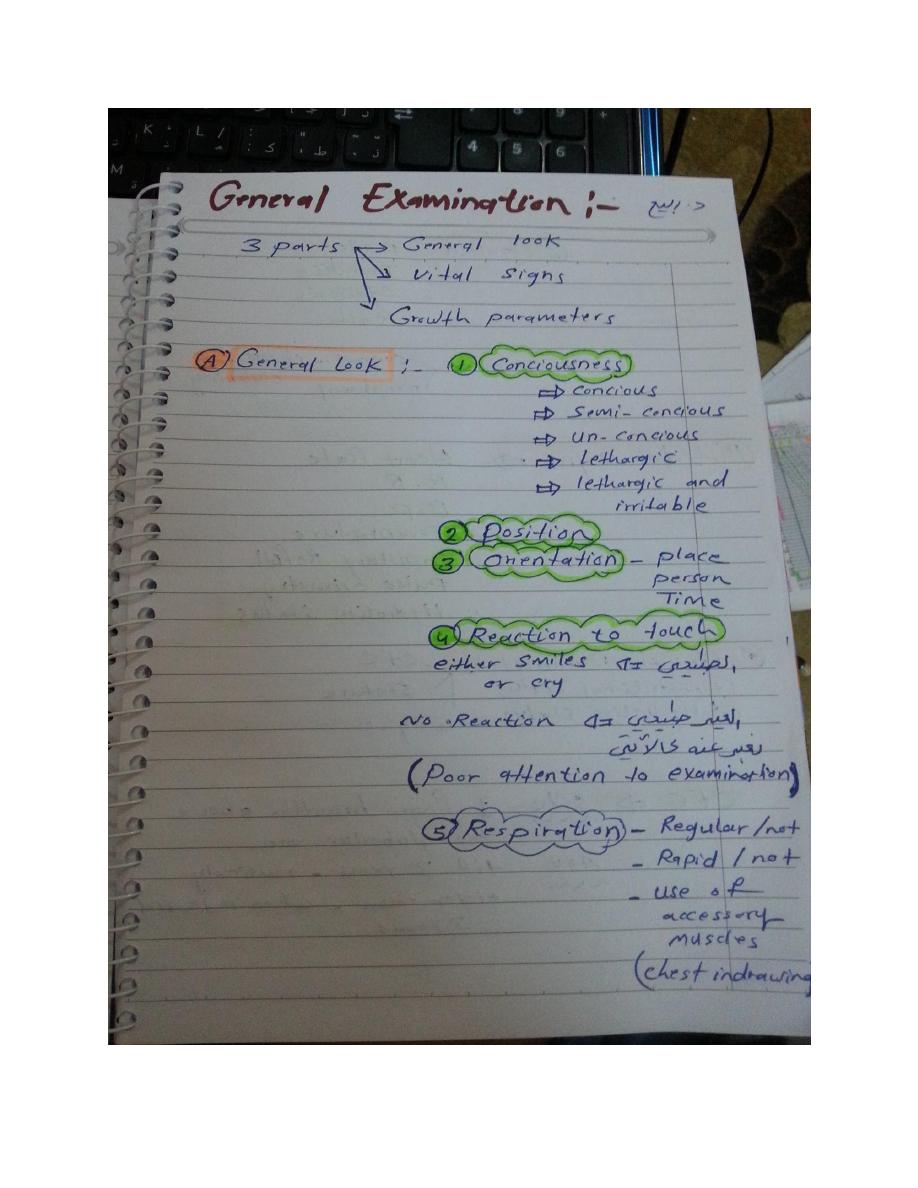 General Examination :-
3 parts → General look
Vital signs
Growth parameters
(A) General Look :- (1) Conciousness
⇒ concious
⇒ semi-concious
⇒ un-concious
⇒ lethargic
⇒ lethargic and
irritable
(2) Position
(3) Orientation – place
person
Time
(4) Reaction to touch
either smiles : ⇐ طبيعي
or cry
No Reaction ⇐ غير طبيعي
نعبر عنه كالآتي
(Poor attention to examination)
(5) Respiration – Regular/not
- Rapid / not
- use of
accessory
muscles
(chest indrawing
K
L /
M
4 5 6